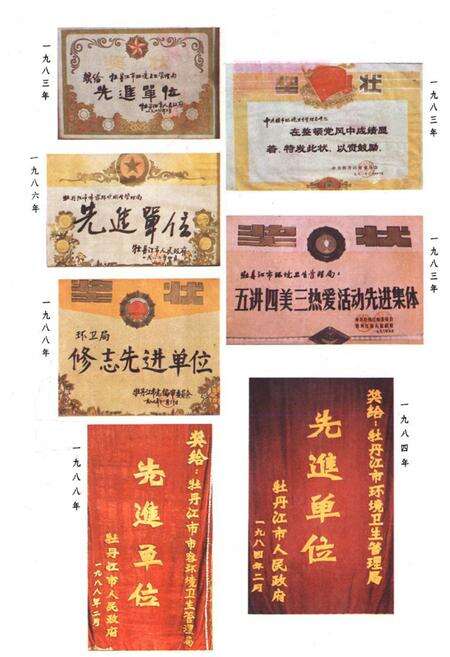 一九八三年
奖给 牡丹江市环境卫生管理局
先進單位
牡丹江市人民政府
一九八三年
奖状
在整顿党风中成绩显
著,特发此状,以资鼓励。
一九八六年
牡丹江市市容环境卫生管理局
先進單位
牡丹江市人民政府
一九八三年
奖状
牡丹江市环境卫生管理局:
五讲四美三热爱活动先进集体
一九八八年
奖状
环卫局
修志先进单位
牡丹江市志编审委员会
一九八八年
奖给:牡丹江市市容环境卫生管理局
先進單位
牡丹江市人民政府
一九八八年二月
一九八四年
奖给:牡丹江市环境卫生管理局
先進單位
牡丹江市人民政府
一九八四年二月